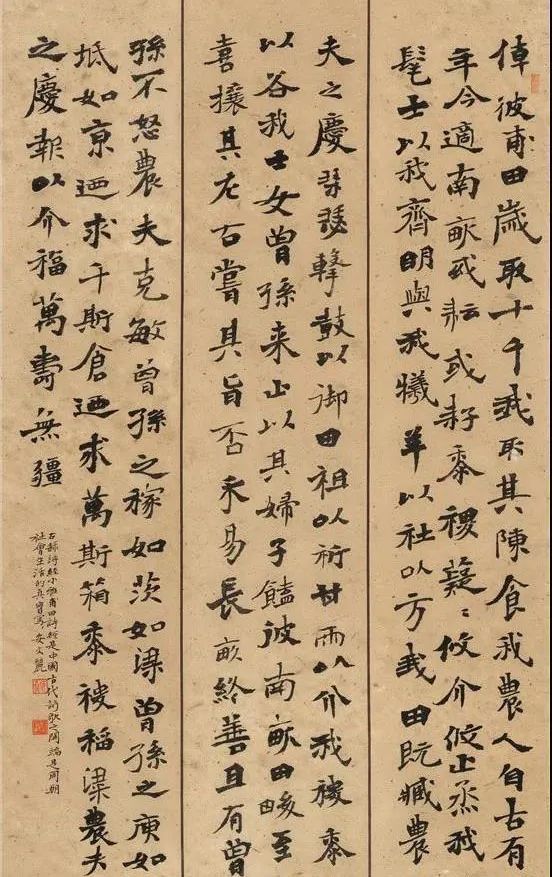 倬彼甫田歲取十千我取其陳食我農人自古有
年今適南畝或耘或耔黍稷薿〻攸介攸止烝我
髦士以我齊明與我犧羊以社以方我田既臧農
夫之慶琴瑟擊鼓以御田祖以祈甘雨以介我稷黍
以谷我士女曾孫来止以其婦子饁彼南畝田畯至
喜攘其左右嘗其旨否禾易長畝終善且有曾
孫不怒農夫克敏曾孫之稼如茨如梁曾孫之庾如
坻如京迺求千斯倉迺求萬斯箱黍稷稻粱農夫
之慶報以介福萬壽無疆
右錄詩經小雅甫田詩經是中國古代詩歌之開端是周朝
社會生活的真實寫 安文麗